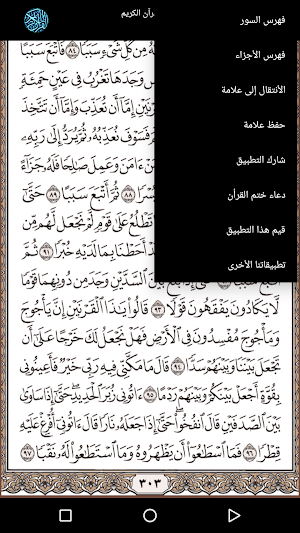 رآن الكريم
فهرس السور
فهرس الأجزاء
الأنتقال إلى علامة
حفظ علامة
شارك التطبيق
دعاء ختم القرأن
قيم هذا التطبيق
تطبيقاتنا الأخرى
مِن كُلِّ شَىْءٍ سَبَبًا ٨٤ فَأَتْبَعَ سَبَبًا
وَجَدَهَا تَغْرُبُ فِى عَيْنٍ حَمِئَةٍ
إِمَّآ أَن تُعَذِّبَ وَإِمَّآ أَن تَتَّخِذَ
فَسَوْفَ نُعَذِّبُهُۥ ثُمَّ يُرَدُّ إِلَىٰ رَبِّهِۦ
مَنْ ءَامَنَ وَعَمِلَ صَٰلِحًا فَلَهُۥ جَزَآءً
يُسْرًا ٨٨ ثُمَّ أَتْبَعَ سَبَبًا ٨٩ حَتَّىٰٓ
تَطْلُعُ عَلَىٰ قَوْمٍ لَّمْ نَجْعَل لَّهُم مِّن
أَحَطْنَا بِمَا لَدَيْهِ خُبْرًا ٩١ ثُمَّ
بَيْنَ ٱلسَّدَّيْنِ وَجَدَ مِن دُونِهِمَا قَوْمًا
لَّا يَكَادُونَ يَفْقَهُونَ قَوْلًا ٩٣ قَالُوا۟ يَٰذَا ٱلْقَرْنَيْنِ إِنَّ يَأْجُوجَ
وَمَأْجُوجَ مُفْسِدُونَ فِى ٱلْأَرْضِ فَهَلْ نَجْعَلُ لَكَ خَرْجًا عَلَىٰٓ أَن
تَجْعَلَ بَيْنَنَا وَبَيْنَهُمْ سَدًّا ٩٤ قَالَ مَا مَكَّنِّى فِيهِ رَبِّى خَيْرٌ فَأَعِينُونِى
بِقُوَّةٍ أَجْعَلْ بَيْنَكُمْ وَبَيْنَهُمْ رَدْمًا ٩٥ ءَاتُونِى زُبَرَ ٱلْحَدِيدِ حَتَّىٰٓ إِذَا سَاوَىٰ
بَيْنَ ٱلصَّدَفَيْنِ قَالَ ٱنفُخُوا۟ حَتَّىٰٓ إِذَا جَعَلَهُۥ نَارًا قَالَ ءَاتُونِىٓ أُفْرِغْ عَلَيْهِ
قِطْرًا ٩٦ فَمَا ٱسْطَٰعُوٓا۟ أَن يَظْهَرُوهُ وَمَا ٱسْتَطَٰعُوا۟ لَهُۥ نَقْبًا ٩٧
٣٠٣